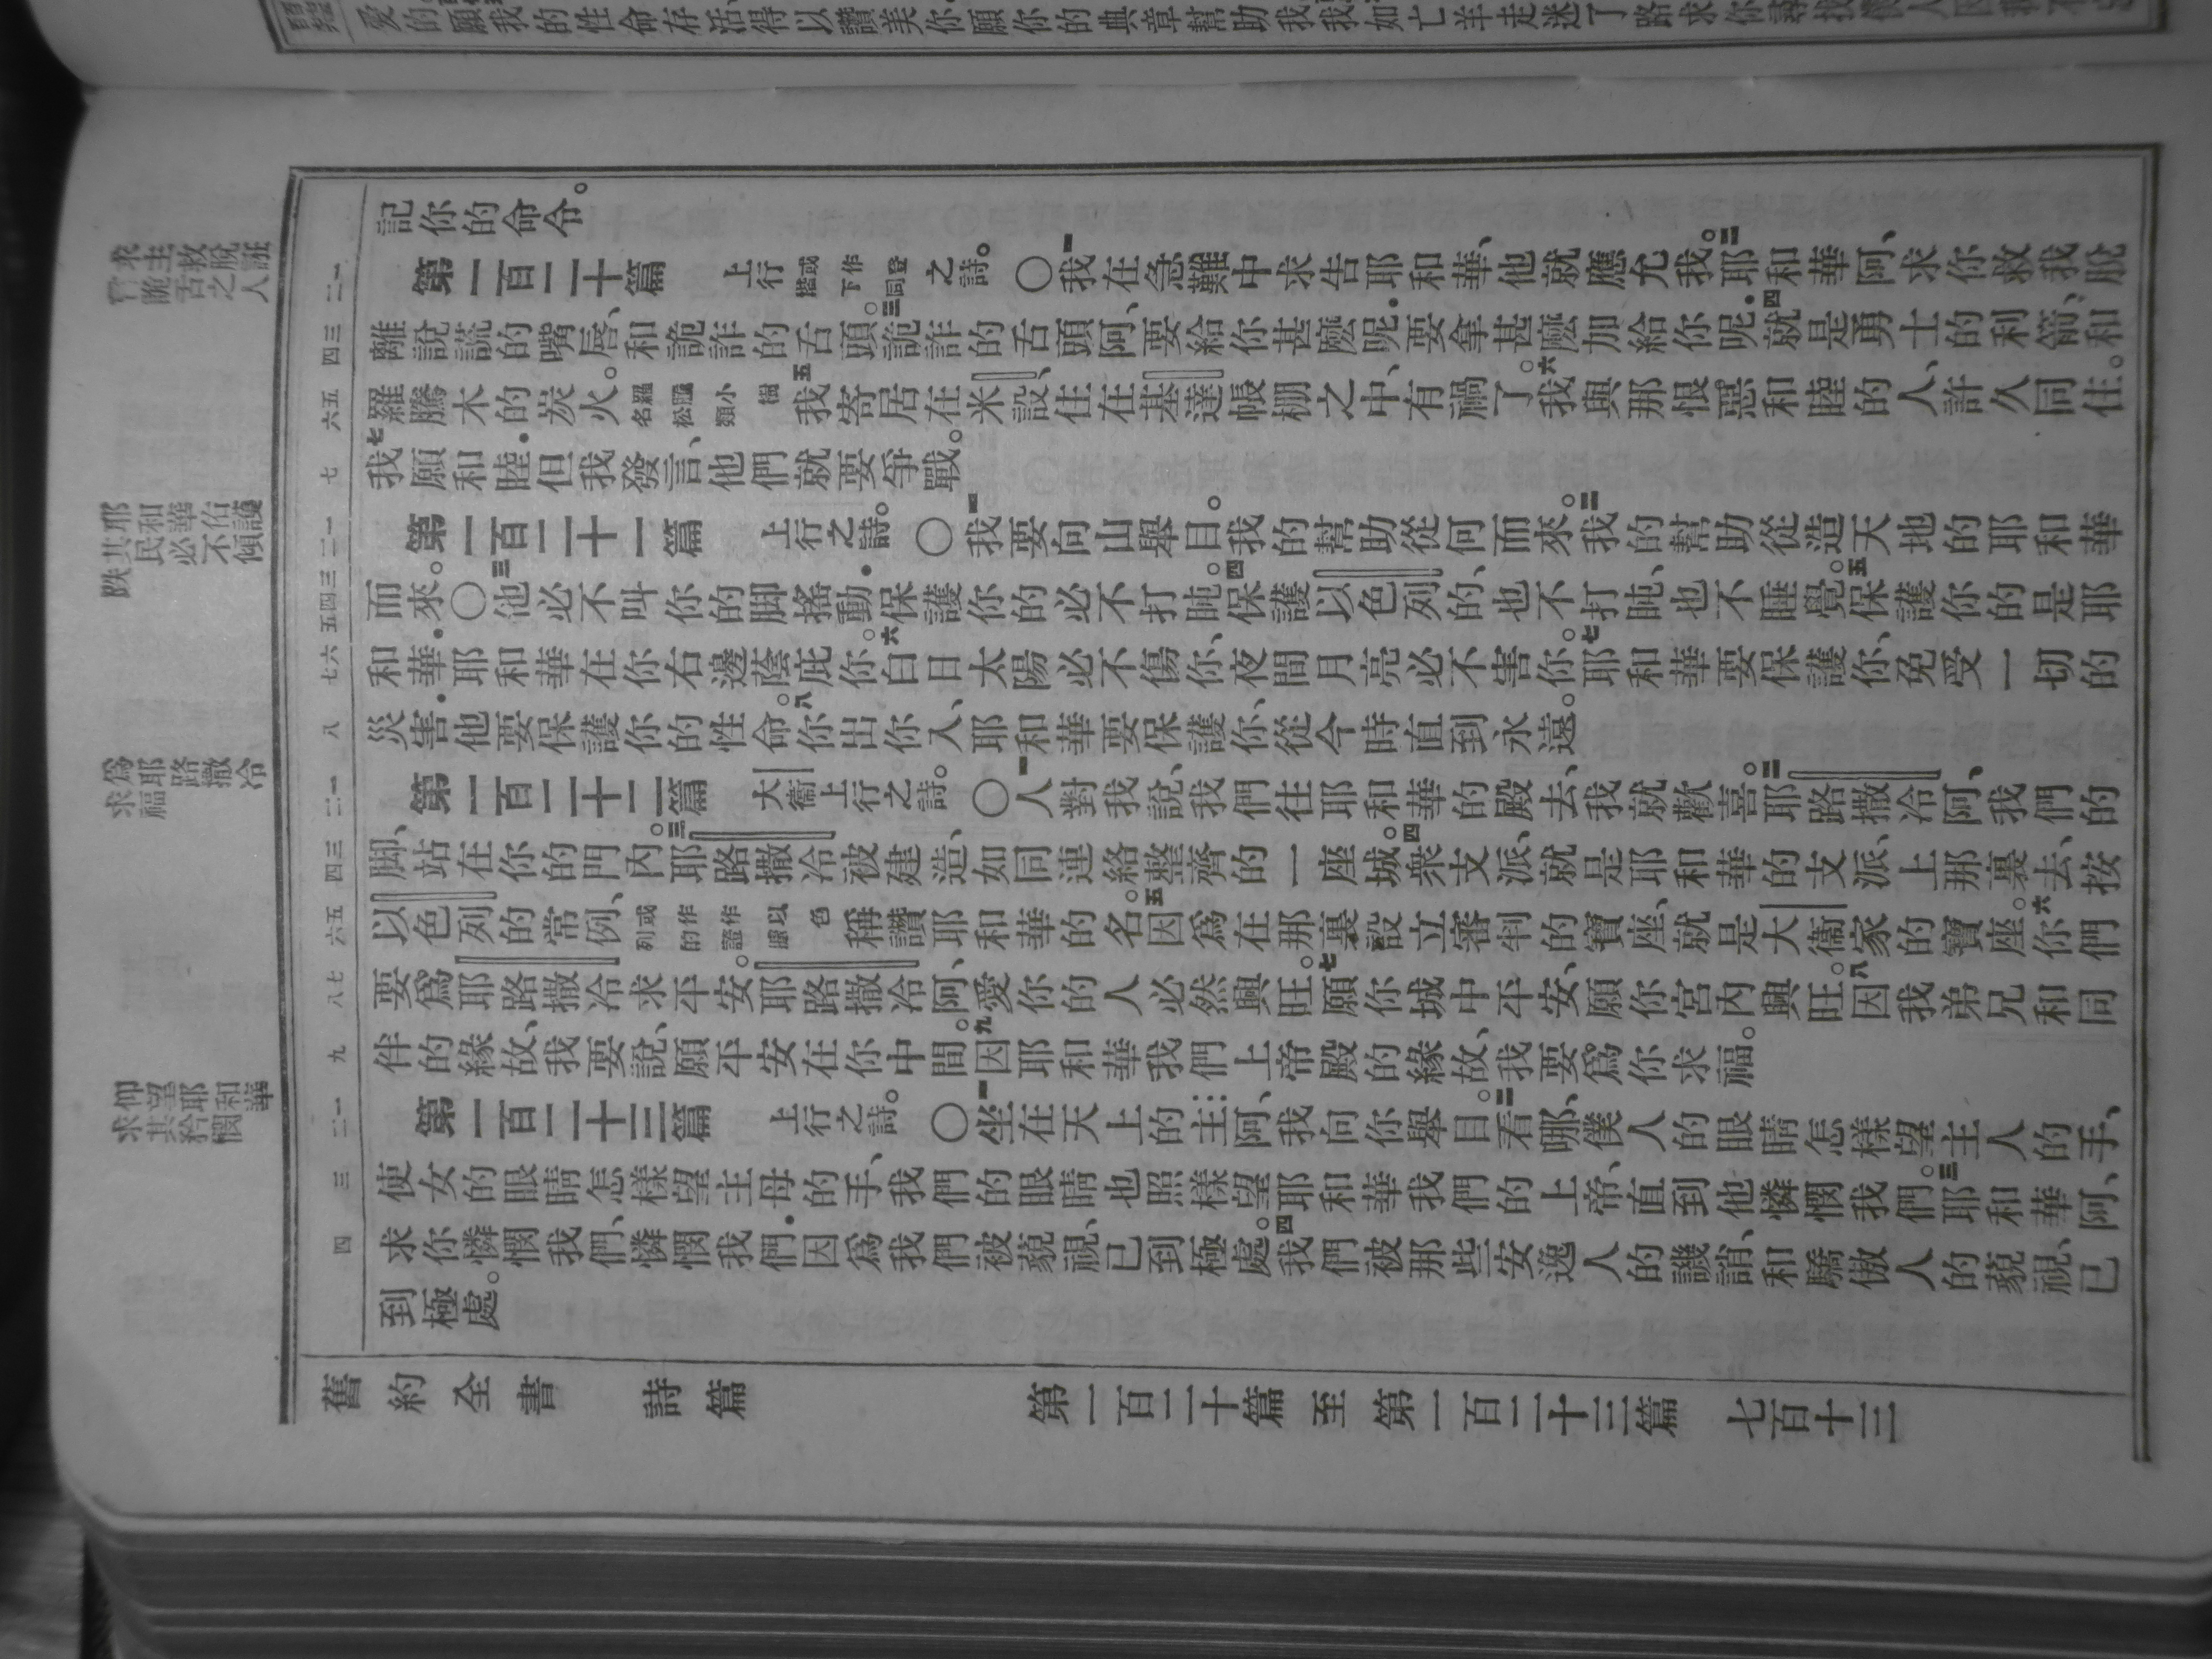 記你的命令。
第一百二十篇 上行或作登階下同之詩。〇一我在急難中求告耶和華、他就應允我。二耶和華阿、求你救我脫
離說謊的嘴唇、和詭詐的舌頭。三詭詐的舌頭阿、要給你甚麼呢.要拿甚麼加給你呢.四就是勇士的利箭、和
羅騰木的炭火。羅騰小樹名松類五我寄居在米設、住在基達帳棚之中、有禍了。六我與那恨惡和睦的人、許久同住。
七我願和睦.但我發言、他們就要爭戰。
第一百二十一篇 上行之詩。〇一我要向山舉目。我的幫助從何而來。二我的幫助從造天地的耶和華
而來。〇三他必不叫你的脚搖動.保護你的必不打盹。四保護以色列的、也不打盹、也不睡覺。五保護你的是耶
和華.耶和華在你右邊蔭庇你。六白日太陽必不傷你、夜間月亮必不害你。七耶和華要保護你、免受一切的
災害.他要保護你的性命。八你出你入、耶和華要保護你、從今時直到永遠。
第一百二十二篇 大衞上行之詩。〇一人對我說、我們往耶和華的殿去、我就歡喜。二耶路撒冷阿、我們的
脚、站在你的門內。三耶路撒冷被建造、如同連絡整齊的一座城。四衆支派、就是耶和華的支派、上那裏去、按
以色列的常例、或作作以色列的證據稱讚耶和華的名。五因爲在那裏設立審判的寶座、就是大衞家的寶座。六你們
要爲耶路撒冷求平安。耶路撒冷阿、愛你的人必然興旺。七願你城中平安、願你宮內興旺。八因我弟兄和同
伴的緣故、我要說、願平安在你中間。九因耶和華我們上帝殿的緣故、我要爲你求福。
第一百二十三篇 上行之詩。〇一坐在天上的主阿、我向你舉目。二看哪、僕人的眼睛怎樣望主人的手、
使女的眼睛怎樣望主母的手、我們的眼睛也照樣望耶和華我們的上帝、直到他憐憫我們。三耶和華阿、
求你憐憫我們、憐憫我們.因爲我們被藐視、已到極處。四我們被那些安逸人的譏誚、和驕傲人的藐視、已
到極處。
求主救脫
詭舌之人
耶和華佑護
其民必不傾
跌
爲耶路撒冷
求福
仰望耶和華
求其矜憫
舊約全書 詩篇 第一百二十篇至第一百二十三篇 七百十三